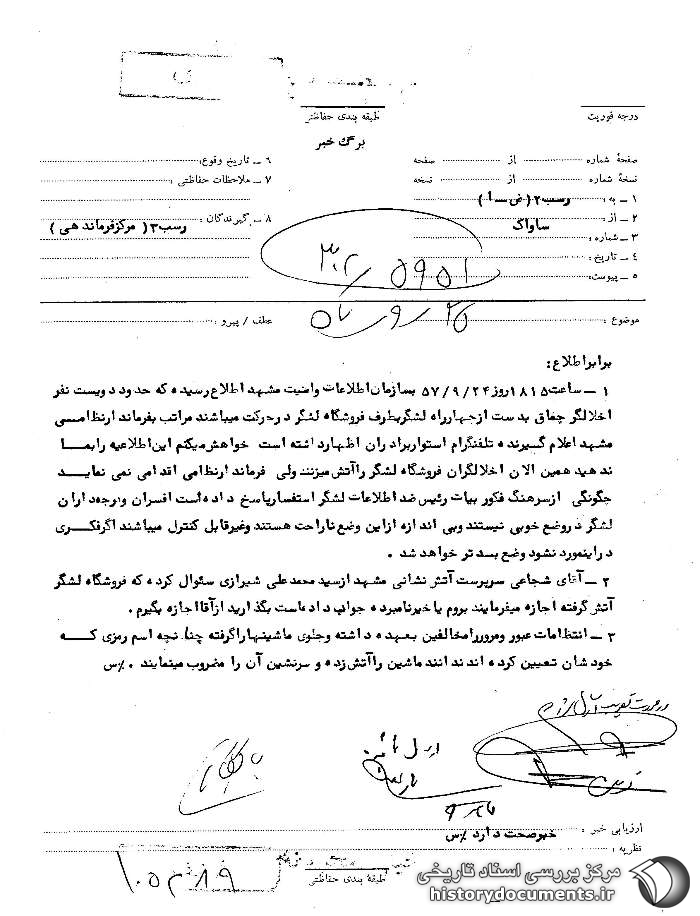 درجه فوریت
طبقه بندی حفاظتی
برگ خبر
صفحهٔ شماره از صفحه
نسخهٔ شماره از نسخه
۱ ــ به : رسب ۲ ( ض سا )
۲ ــ از : ساواک
۳ ــ شماره :
۴ ــ تاریخ :
۵ ــ پیوست :
۶ ــ تاریخ وقوع :
۷ ــ ملاحظات حفاظتی :
۸ ــ گیرندگان : رسب ۳ ( مرکز فرماندهی )
۳۰۲/۵۹۵۱
موضوع : ۵۷/۹/۲۵
عطف / پیرو :
برابر اطلاع :
۱ ــ ساعت ۱۸۱۵ روز ۵۷/۹/۲۴ بسازمان اطلاعات وامنیت مشهد اطلاع رسیده که حدود دویست نفر
اخلالگر چماق بدست از چهارراه لشگر بطرف فروشگاه لشگر در حرکت میباشند مراتب بفرماندار نظامی
مشهد اعلام گیرنده تلفنگرام استوار برادران اظهار داشته است خواهش میکنم این اطلاعیه را بما
ندهید همین الان اخلالگران فروشگاه لشگر را آتش میزنند ولی فرماندار نظامی اقدامی نمی نماید
چگونگی از سرهنگ فکور بیات رئیس ضد اطلاعات لشگر استفسار پاسخ داده است افسران و درجه داران
لشگر در وضع خوبی نیستند وبی اندازه از این وضع ناراحت هستند وغیر قابل کنترل میباشند اگر فکری
در اینمورد نشود وضع بدتر خواهد شد .
۲ ــ آقای شجاعی سرپرست آتش نشانی مشهد از سید محمد علی شیرازی سئوال کرده که فروشگاه لشگر
آتش گرفته اجازه میفرمایند بروم یا خیر نامبرده جواب داده است بگذارید از آقا اجازه بگیرم .
۳ ــ انتظامات عبور ومرور را مخالفین بعهده داشته وجلوی ماشینها را گرفته چنانچه اسم رمزی که
خودشان تعیین کرده اند ندانند ماشین را آتش زده و سرنشین آن را مضروب مینمایند . %س
ارزیابی خبر : خبر صحت دارد %س
نظریه :
طبقه بندی حفاظتی
مرکز بررسی اسناد تاریخی
historydocuments.ir